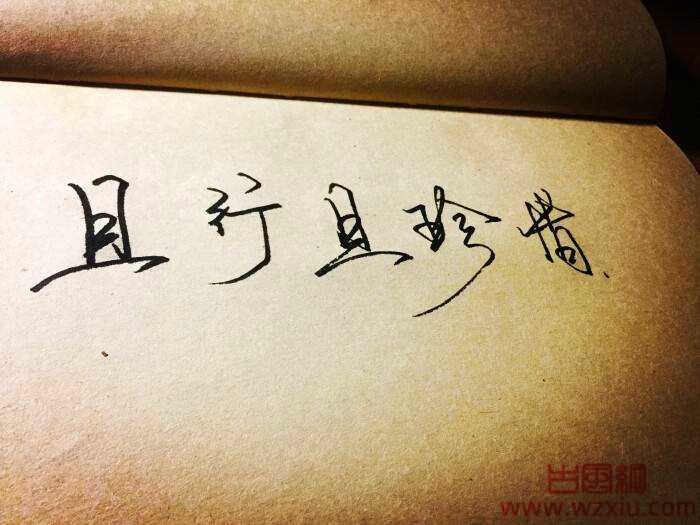 且行且珍惜.
www.wzxiu.com